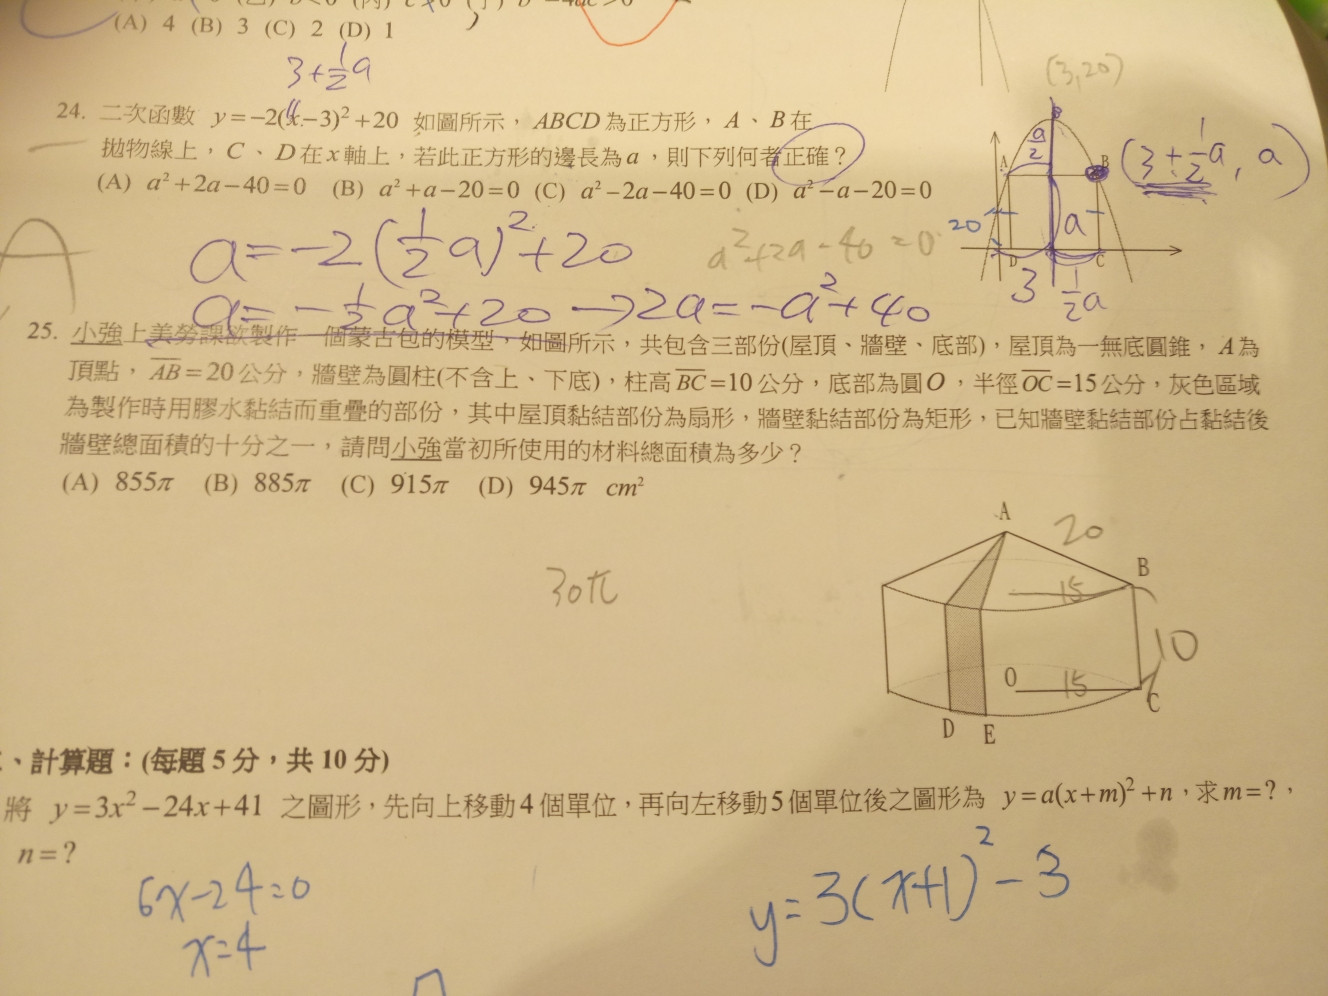 (A) 4 (B) 3 (C) 2 (D) 1
3+½a
(3,20)
24. 二次函數 y=-2(x-3)²+20 如圖所示，ABCD為正方形，A、B在
拋物線上，C、D在x軸上，若此正方形的邊長為a，則下列何者正確？
(A) a²+2a-40=0 (B) a²+a-20=0 (C) a²-2a-40=0 (D) a²-a-20=0
a/2
A
B
(3+½a, a)
20
a
D
C
3
½a
A
a=-2(½a)²+20
a²+2a-40=0
a=-½a²+20→2a=-a²+40
25. 小強上美勞課欲製作一個蒙古包的模型，如圖所示，共包含三部份(屋頂、牆壁、底部)，屋頂為一無底圓錐，A為
頂點，AB=20公分，牆壁為圓柱(不含上、下底)，柱高BC=10公分，底部為圓O，半徑OC=15公分，灰色區域
為製作時用膠水黏結而重疊的部份，其中屋頂黏結部份為扇形，牆壁黏結部份為矩形，已知牆壁黏結部份占黏結後
牆壁總面積的十分之一，請問小強當初所使用的材料總面積為多少？
(A) 855π (B) 885π (C) 915π (D) 945π cm²
30π
A
20
B
15
10
O
15
C
D
E
、計算題：(每題5分，共10分)
將 y=3x²-24x+41 之圖形，先向上移動4個單位，再向左移動5個單位後之圖形為 y=a(x+m)²+n，求m=?，
n=?
6x-24=0
x=4
y=3(x+1)²-3